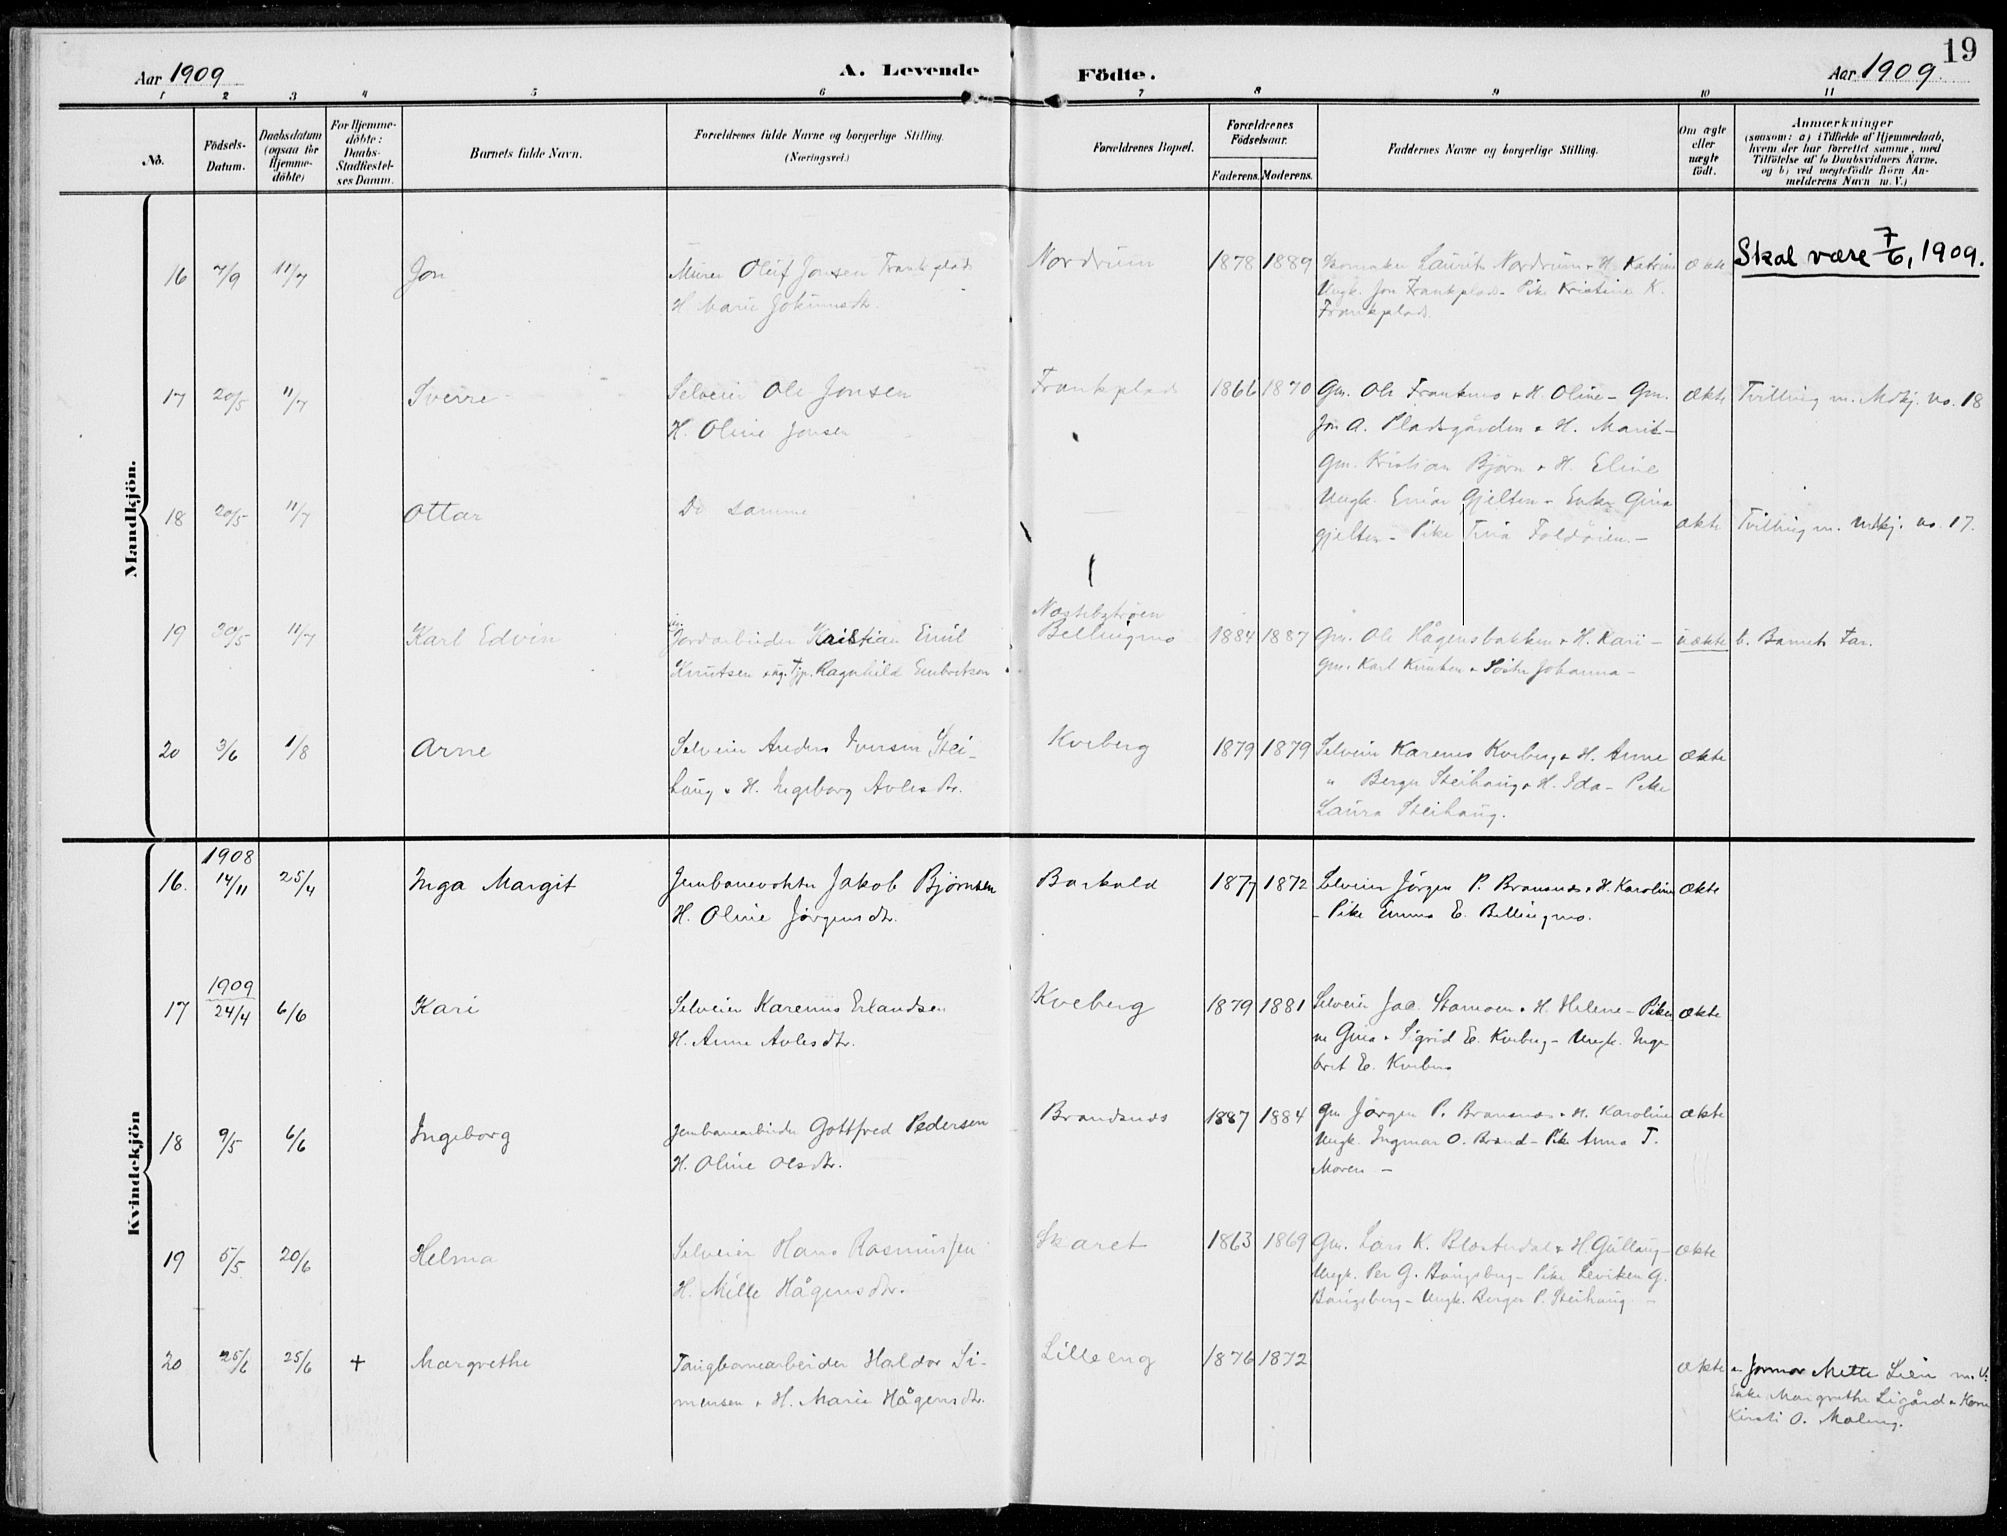 19
Aar 1909
A. Levende
Födte.
Aar 1909.
1 2 3 4 5 6 7 8 9 10 11
No.
Födsels-
Datum.
Daabsdatum
(ogsaa for
Hjemme-
döbte)
For Hjemme-
döbte:
Daabs-
Stadfæstel-
ses Datum.
Barnets fulde Navn.
Forældrenes fulde Navne og borgerlige Stilling.
(Næringsvei.)
Forældrenes Bopæl.
Forældrenes
Födselsaar.
Faderens. Moderens.
Faddernes Navne og borgerlige Stilling.
Om ægte
eller
uægte
födt.
Anmærkninger
(saasom: a) i Tilfælde af Hjemmedaab,
hvem der har forrettet samme, med
Tilföielse af to Daabsvidners Navne.
og b) ved uægtefödte Börn An-
melderens Navn m. V.)
Mandkjön.
16 7/9 11/7 Jon
Murer Oluf Jonsen Frankplads
H. Marie
Nordrum
1878 1889
Laurits Nordrum + H. Katrine
Ungk. Jon Frankplads - Pike Kristine K.
Frankplads.
ækte
Skal være 7/6, 1909.
17 20/5 11/7 Sverre
Selveier Ole Jonsen
H. Oline Jonsen
Frankplads
1866 1870
Gm. Ole Franknes + H. Oline - Gm.
Jon A. Pladsgården + H. Marit -
Gm. Kristian Bjørn + H. Eline
ækte
Tvilling m. Mdkj. no. 18
18 20/5 11/7 Ottar
De samme
Ungk. Einar Gjelten - Enke Gina
Gjelten - Pike Tina Foldøien. -
ækte
Tvilling m. Mdkj. no. 17.
19 30/5 11/7 Karl Edvin
Jordarbeider Kristian Emil
Knutsen + ug. Tj.p. Ragnhild Embretsen
Bellingmo
1884 1887
Gm. Ole Hågensbakken + H. Kari -
Gm. Karl Knutsen + Søster Johanna -
uækte
b. Barnets far.
20 3/6 1/8 Arne
Selveier Anders Iversen Stei-
haug + H. Ingeborg Avlesdtr.
Kveberg
1879 1879
Selveier Karenus Kveberg + H. Anne
" Berger Steihaug + H. Ida - Pike
Laura Steihaug.
ækte
Kvindekjön
1908
16. 14/11 25/4 Inga Margit
Jernbanevokter Jakob Bjørnsen
H. Oline Jørgensdtr.
Barkald
1877 1872
Selveier Jörgen P. Bransnes + H. Karoline
- Pike Emma E. Bellingmo.
ækte
1909
17 24/4 6/6 Kari
Selveier Karenus Erlandsen
H. Anne Avlesdtr.
Kveberg
1879 1881
Selveier Jac. Stamoen + H. Helene - Piker
ne Gina + Sigrid E. Kveberg - Ungk. Inge
brit E. Kveberg
ækte
18 9/5 6/6 Ingeborg
Jernbanearbeider Gottfred Pedersen
H. Oline Olsdtr.
Brandsnes
1887 1884
Gm Jørgen P. Bransnes + H. Karoline
Ungk. Ingmar O. Brand - Pike Anna T.
Moren -
ækte
19 5/5 20/6 Helma
Selveier Hans Rasmussen
H. Mille Hågensdtr.
Skaret
1863 1869
Gm. Lars K. + H Gullaug -
Ungk. Per G. Baugsberg - Pike G.
Baugsberg - Ungk. Berger P. Steihaug -
ækte
20 25/6 25/6 + Margrethe
Haldor Si-
mensen + H. Marie Hågensdtr.
Lilleeng
1876 1872
ækte
a Jormor Mette Lien m. V:
Enke Margrethe Ligård + Kone
Kirsti O. Moleng.